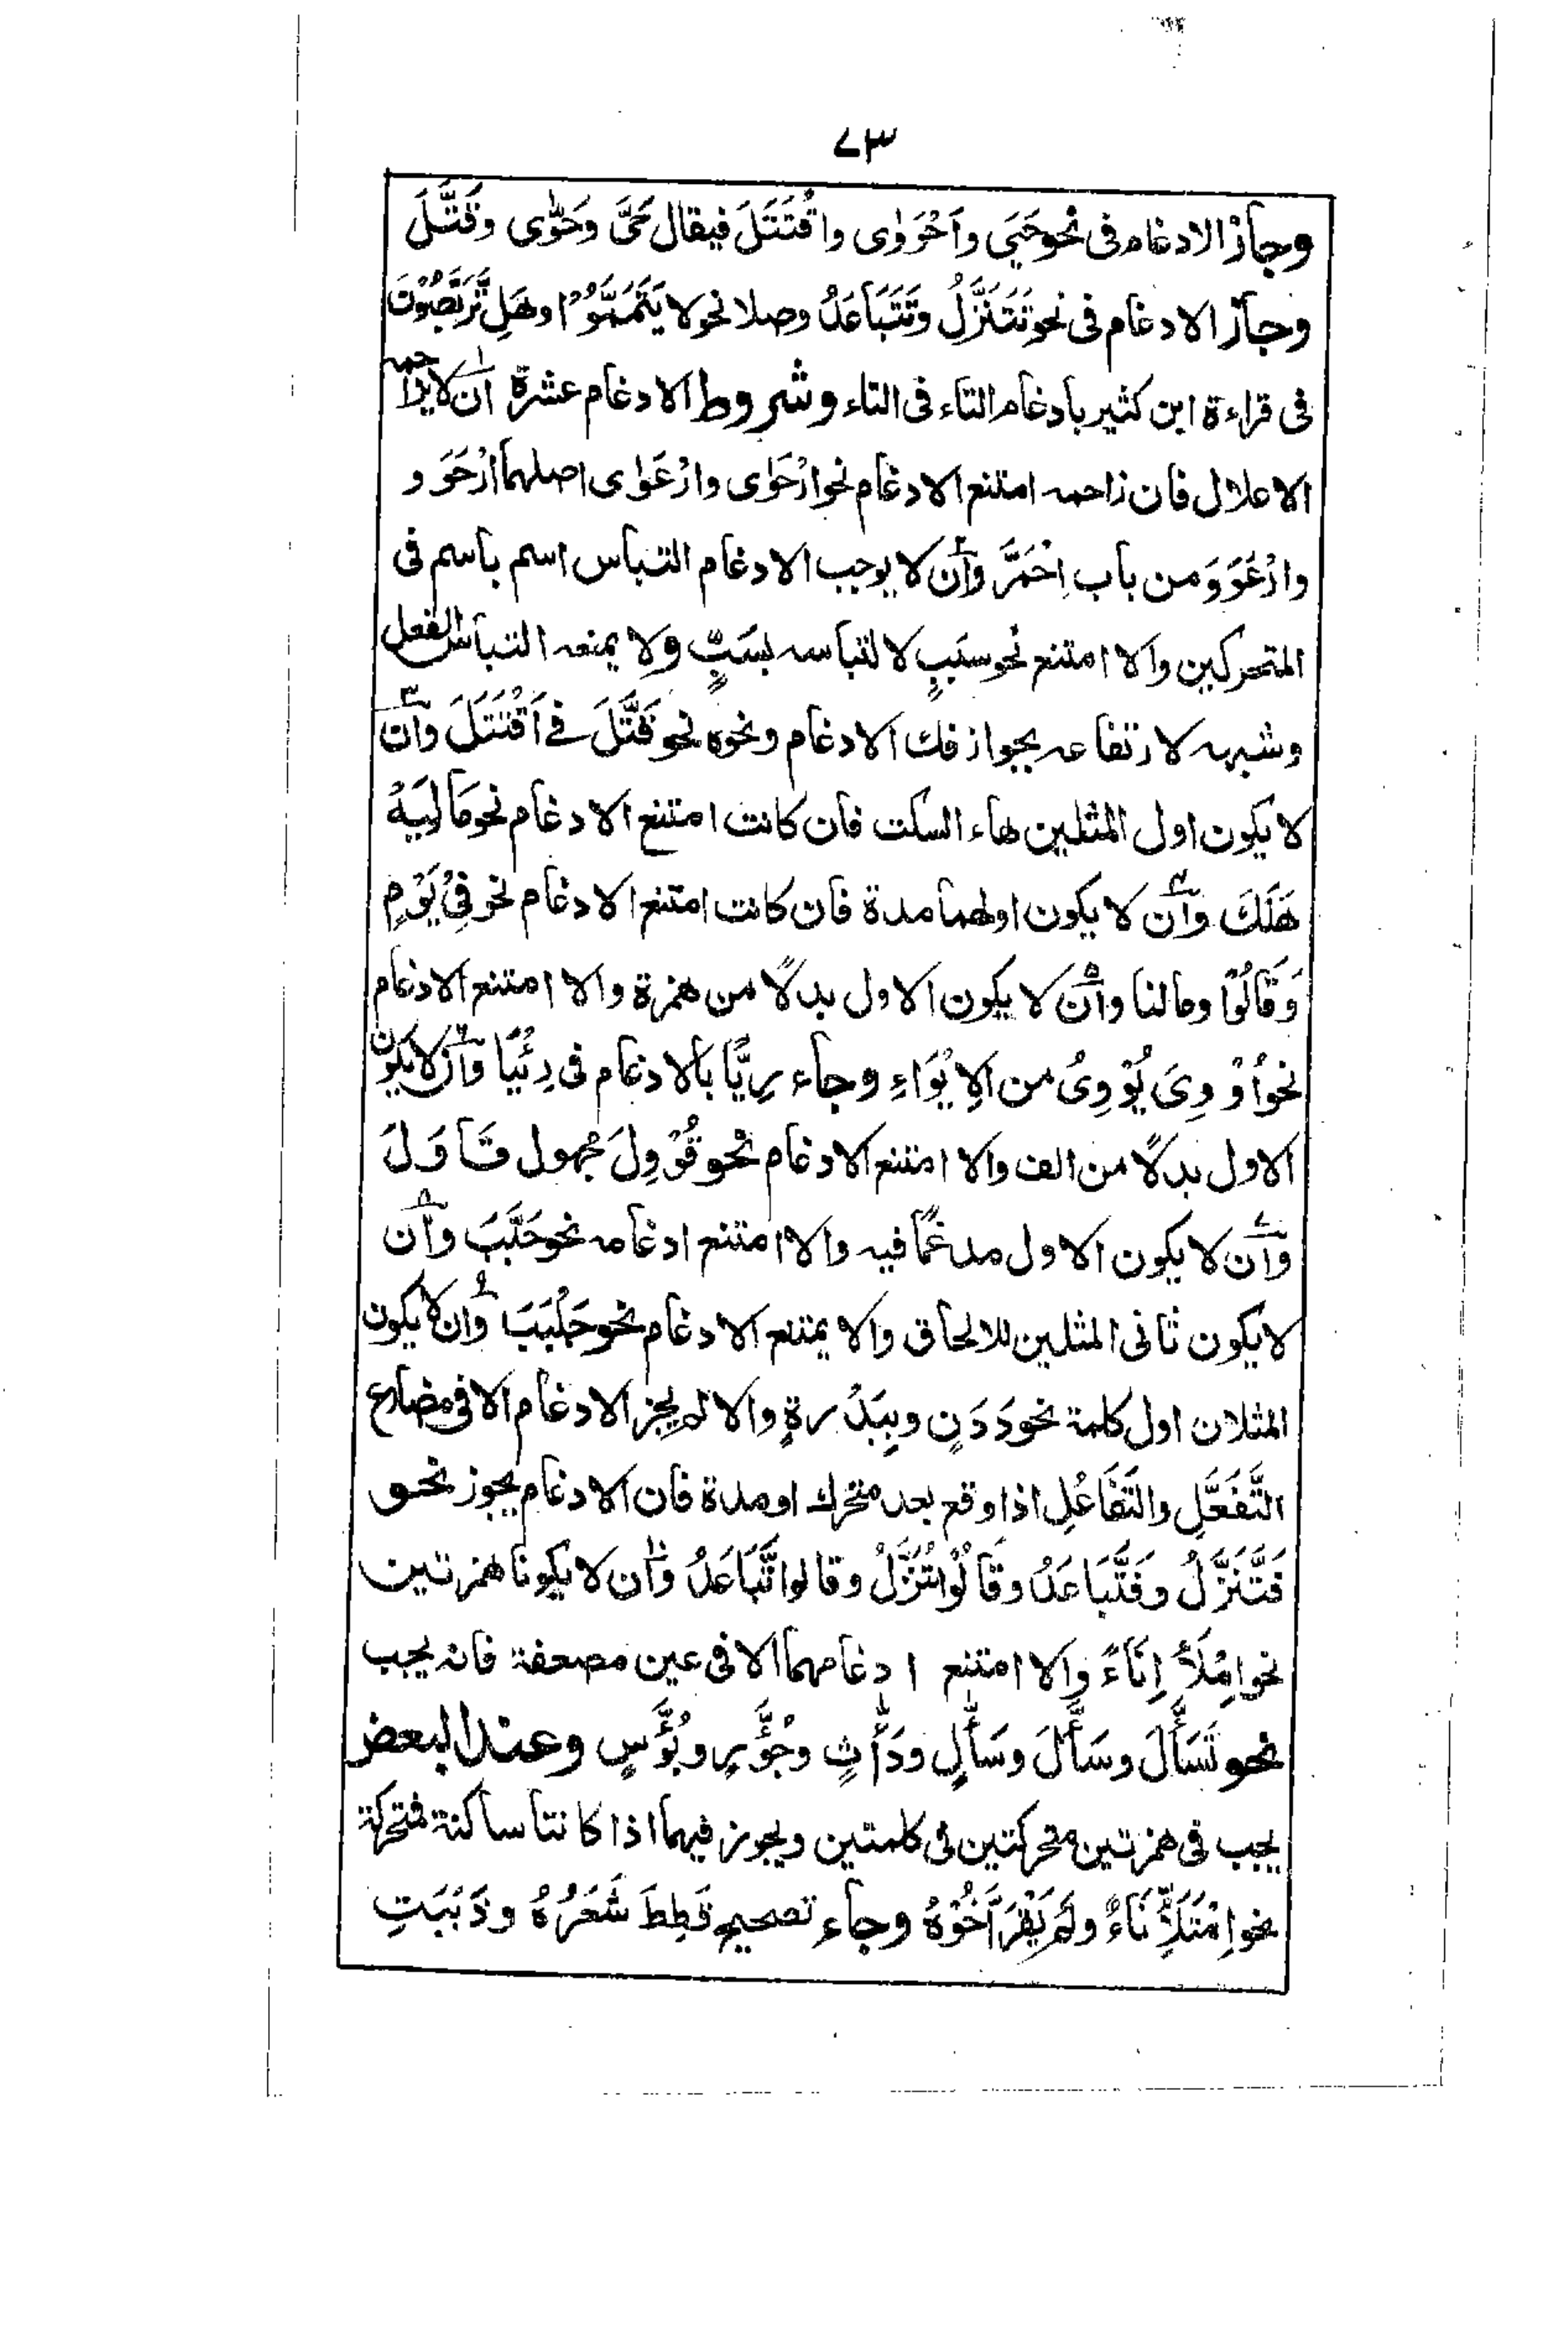 ٧٣
وجاز الادغام فى نحو حَيِيَ واَحْوَوٰى واقْتَتَلَ فيقال حَيَّ وَحَوّٰى وقَتَّلَ
وجاز الادغام فى نحو تَتَنَزَّلُ وَتَتَبَاعَدُ وصلا نحو لا تَيَمَّمُوْا وهَلْ تَّرَبَّصُوْنَ
فى قراءة ابن كثير بادغام التاء فى التاء وشروط الادغام عشرة ١ اَن لا يزاحمه
الاعلال فان زاحمه امتنع الادغام نحو ارْحَوٰى وارْعَوٰى اصلهما ارْحَوَوَ
وارْعَوَوَ من باب اِحْمَرَّ ٢ واَن لا يوجب الادغام التباس اسم باسم فى
المتحركين والا امتنع نحو سَبَبٍ لالتباسه بسَبٍّ ولا يمنعه التباس الفعل
وشبهه لارتفاعه بجواز فك الادغام ونحوه نحو قَتَّلَ فے اَقْتَتَلَ ٣ واَن
لا يكون اول المثلين هاء السكت فان كانت امتنع الادغام نحو مَالِيَهْ
هَلَكَ ٤ واَن لا يكون اولهما مدة فان كانت امتنع الادغام نحو فِيْ يَوْمٍ
وَقَالُوْا ومالنا ٥ واَن لا يكون الاول بدلًا من همزة والا امتنع الادغام
نحو اُوْوِىَ يُوْوِىُ من الاِيْوَاءِ وجاء رِيًّا بالادغام فى رِئْيًا ٦ واَن لا يكون
الاول بدلًا من الف والا امتنع الادغام نحو قُوْوِلَ مجهول قَاوَلَ
٧ واَن لا يكون الاول مدغمًا فيه والا امتنع ادغامه نحو حَبَّبَ ٨ واَن
لا يكون ثانى المثلين للالحاق والا يمتنع الادغام نحو جَلْبَبَ ٩ وان لا يكون
المثلان اول كلمة نحو دَدَنٍ وبِبَدْرةٍ والا لم يجز الادغام الا فى مضارع
التَّفَعَّلِ والتَفَاعُلِ اذا وقع بعد متحرك او مدة فان الادغام يجوز نحو
فَتَّنَزَّلُ وفَتَّبَاعَدُ وقَالُوْاتَّنَزَّلُ وقالوا تَّبَاعَدُ ١٠ وَان لا يكونا همزتين
نحو اِمْلَأْ اِنَاءً والا امتنع ادغامهما الا فى عين مضعفة فانه يجب
نحو تَسَأَّلَ وسَأَّلَ وسَأّٰلٍ ودَأّٰثٍ وجُؤَّرٍ وبُؤَّسٍ وعند البعض
يجب فى همزتين متحركتين فى كلمتين ويجوز فيهما اذا كانتا ساكنة فمتحركة
نحو اِمْتَلَأِّنَاءٌ ولَمْ يَقْرَأَّخُوْهُ وجاء تصحيح قَطِطَ شَعَرُهُ ودَبَبَتِ